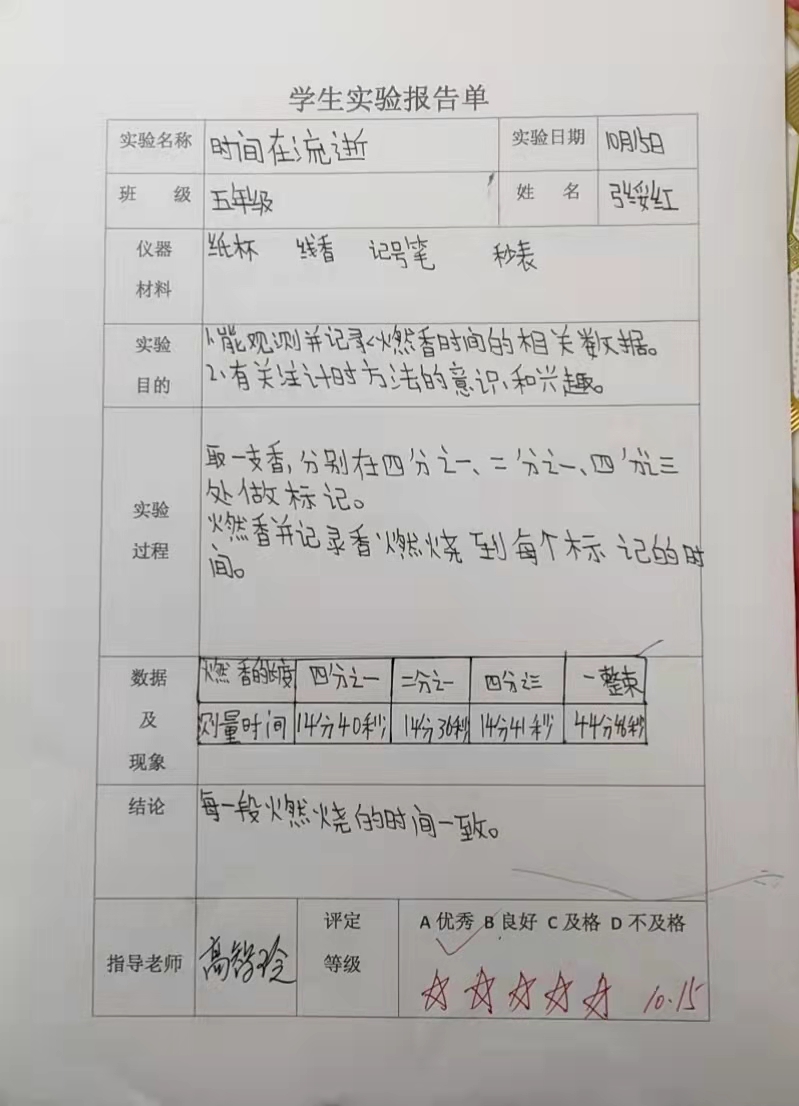 学生实验报告单
实验名称 时间在流逝 实验日期 10月15日
班 级 五年级 姓 名 张绥红
仪器 纸杯 线香 记号笔 秒表
材料
实验 1、能观测并记录燃香时间的相关数据。
目的 2、有关注计时方法的意识和兴趣。
取一支香,分别在四分之一、二分之一、四分之三
处做标记。
实验
燃香并记录香燃烧到每个标记的时
过程
间。
数据 燃香的长度 四分之一 二分之一 四分之三 一整束
及 测量时间 14分40秒 14分36秒 14分41秒 44分46秒
现象
结论 每一段燃烧的时间一致。
评定 A 优秀 B 良好 C 及格 D 不及格
指导老师 高智玲 等级
10.15